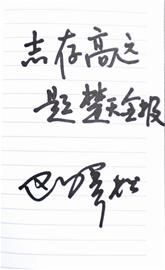 志存高远
题楚天金报